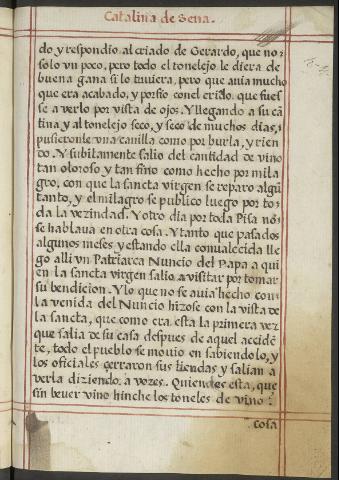 Catalina de Sena.
do y respondio al criado de Gerardo, que no
solo vn poco, pero todo el tonelejo le diera de
buena gana si lo tuuiera, pero que auia mucho
que era acabado, y porfio con el criado que fues
se a verlo por vista de ojos. Y llegando a su cã
tina y al tonelejo seco, y seco de muchos dias,
pusieronle vna canilla como por burla, y rien
do. Y subitamente salio del cantidad de vino
tan oloroso y tan fino como hecho por mila
gro, con que la sancta virgen se reparo algũ
tanto, y el milagro se publico luego por to
da la vezindad. Y otro dia por toda Pisa no
se hablaua en otra cosa. Y tanto que pasados
algunos meses y estando ella conualecida lle
go alli vn Patriarca Nuncio del Papa a qui
en la sancta virgen salio a visitar por tomar
su bendicion. Y lo que no se auia hecho con
la venida del Nuncio hizose con la vista de
la sancta, que como era esta la primera vez
que salia de su casa despues de aquel accidē
te, todo el pueblo se mouio en sabiendolo, y
los oficiales cerraron sus tiendas y salian a
verla diziendo a vozes. Quien es esta, que
sin beuer vino hinche los toneles de vino?
cosa